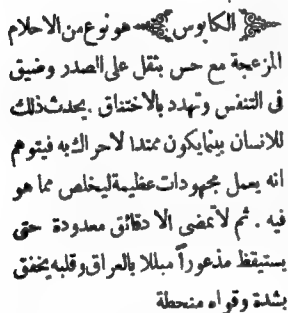 ﴿الكابوس﴾ هو نوع من الاحلام
المزعجة مع حس بثقل على الصدر وضيق
فى التنفس وتهدد بالاختناق . يحدث ذلك
للانسان بينما يكون ممتدا لاحراك به فيتوهم
انه يعمل مجهودات عظيمة ليخلص مما هو
فيه . ثم لا تمضى الا دقائق معدودة حتى
يستيقظ مذعوراً مبللا بالعراق وقلبه يخفق
بشدة وقواه منحطة